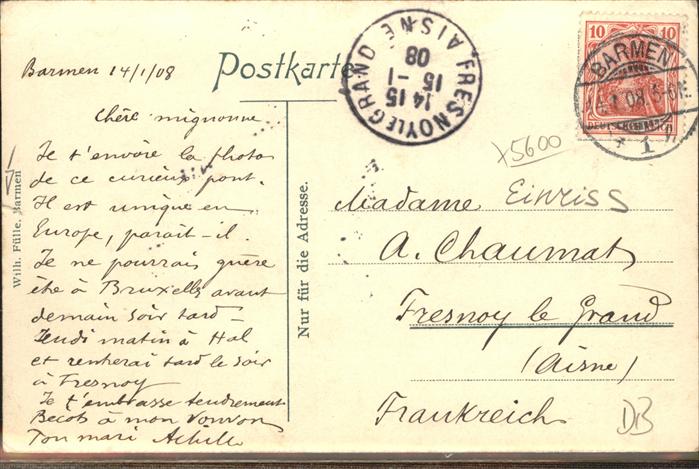 Barmen 14/1/08
Postkarte
Chère mignonne
Je t'envoie la photo
de ce curieux pont.
Il est unique en
Europe, parait-il.
Je ne pourrais guère
être à Bruxelles avant
demain soir tard —
Jeudi matin à Hal
et rentrerai tard le soir
à Fresnoy
Je t'embrasse tendrement
Becots à mon Vonvon
Ton mari Achille
Wilh. Fülle, Barmen
Nur für die Adresse.
FRESNOY LE GRAND AISNE
14 15
15 - 1
08
10 10
DEUTSCHES REICH
BARMEN
1
x5600
Einriss
Madame
A. Chaumat
Fresnoy le Grand
(Aisne)
Frankreich
DB